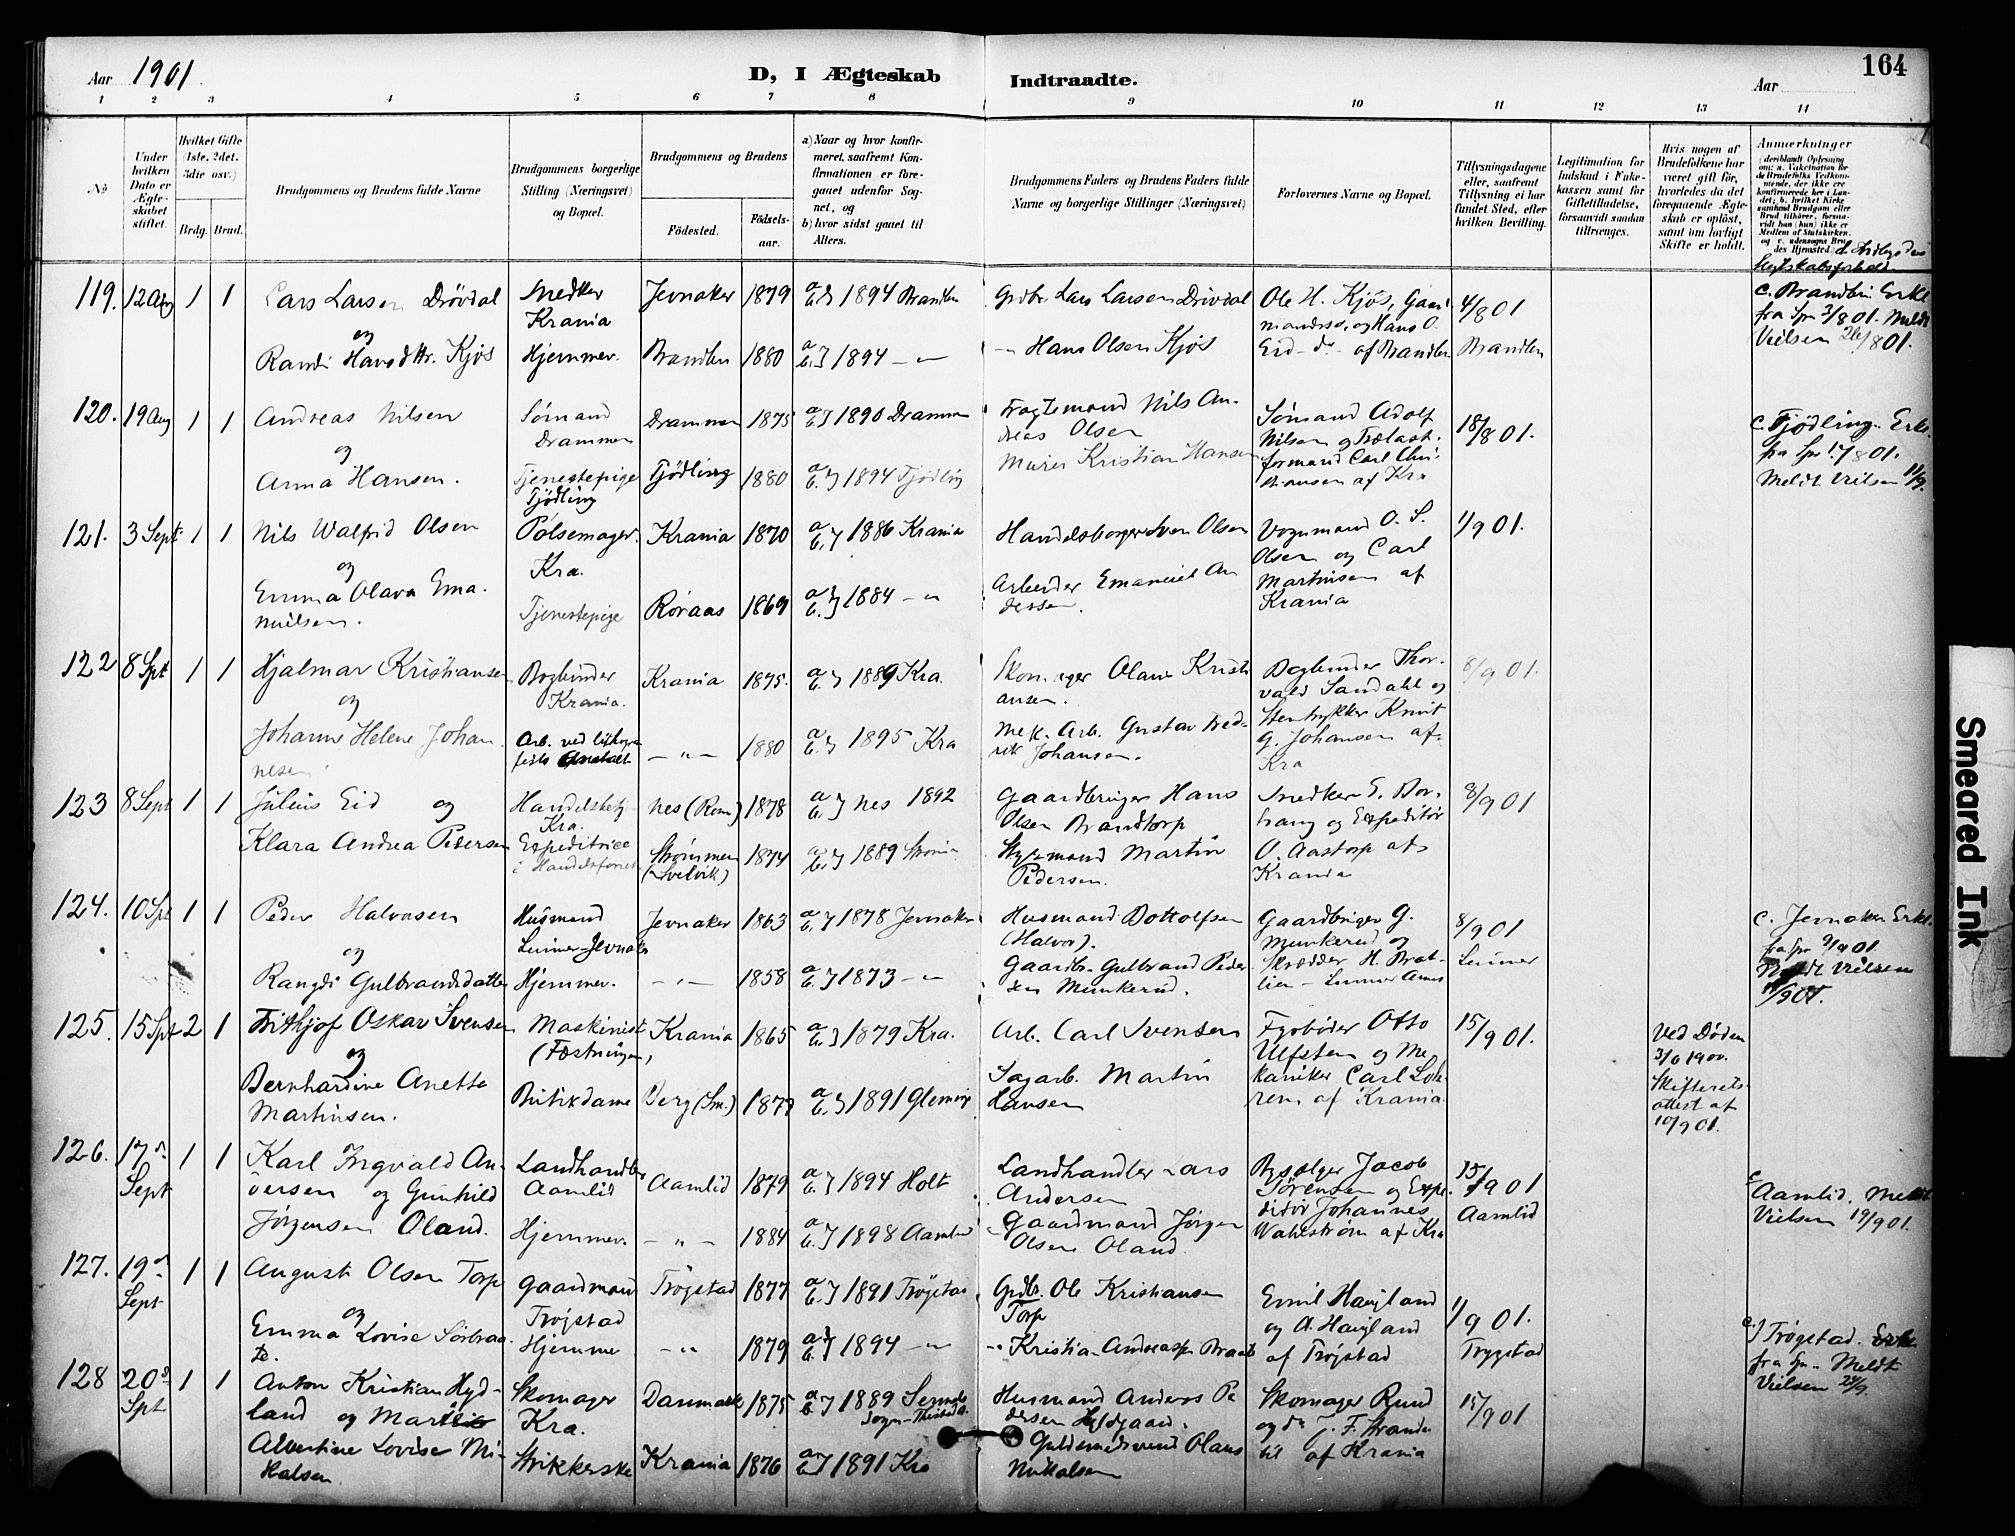 Aar 1901. D, I Ægteskab Indtraadte. Aar 164
1 2 3 4 5 6 7 8 9 10 11 12 13 14
No
Under hvilken Dato er Ægteskabet stiftet.
Hvilket Gifte (1ste, 2det, 3die osv.)
Brdg. Brud.
Brudgommens og Brudens fulde Navne
Brudgommens borgerlige Stilling (Næringsvei) og Bopæl.
Brudgommens og Brudens
Fødested.
Fødsels-aar.
a) Naar og hvor konfirmeret, saafremt Konfirmationen er foregaaet udenfor Sognet, og
b) hvor sidst gaaet til Alters.
Brudgommens Faders og Brudens Faders fulde Navne og borgerlige Stillinger (Næringsvei)
Forlovernes Navne og Bopæl.
Tillysningsdagene eller, saafremt Tillysning ei har fundet Sted, efter hvilken Bevilling.
Legitimation for Indskud i Enkekassen samt for Giftetilladelse, forsaavidt saadan tiltrænges.
Hvis nogen af Brudefolkene har været gift før, hvorledes da det foregaaende Ægteskab er opløst, samt om lovligt Skifte er holdt.
Anmerkninger
119. 12 Aug 1 1 Lars Larsen Drövdal Snedker Krania Jevnaker 1879 1894 Brandbu Grdbr. Lars Larsen Drövdal Ole H. Kjös, og Hans O. 4/8 01
og
Randi Hansdttr. Kjös Hjemmev. Brandbu 1880 1894 — " — " Hans Olsen Kjös af Brandbu Brandbu
c. Brandbu
fra Spr 3/8 01. Meldt
Vielsen 26/8 01.
120. 19 Aug 1 1 Andreas Nilsen Sömand Drammen Drammen 1875 1890 Drammen Fragtemand Nils Andreas Olsen Sömand Adolf Nilsen og Trælastformand Carl Christiansen af Kra 18/8 01.
og
Anna Hansen. Tjenestepige Tjödling Tjödling 1880 1894 Tjödling Murer Kristian Hansen
c. Tjödling
fra Spr 17/8 01.
Meldt Vielsen 11/9.
121. 3 Sept 1 1 Nils Walfrid Olsen Pölsemager. Kra. Krania 1870 1886 Krania Handelsborger Sven Olsen Vognmand O. S. Olsen og Carl Martinsen af Krania 1/9 01.
og
Emma Olava Emanuelsen. Tjenestepige Röraas 1869 1884 — " Arbeider Emanuel Andersen.
122 8 Spt 1 1 Hjalmar Kristiansen Bogbinder Krania. Krania 1875. 1889 Kra. Skomager Olaus Kristiansen. Bogbinder Thorvald Sandahl og Stentrykker Knut G. Johansen af Kra 8/9 01.
og
Johanne Helene Johannesen. Arb. ved — " — 1880 1895 Kra Mek. Arb. Gustav Fredrik Johansen.
123 8 Sept 1 1 Julius Eid og Handelsbetj. Kra. Nes (Rom) 1878 Nes 1892 Gaardbruger Hans Olsen Brandtorp Snedker E. og Expeditör O. Aastorp af Krania 8/9 01
Klara Andrea Pedersen Expeditrice i Strömmen (Svelvik) 1874 1889 Styrmand Martin Pedersen.
124. 10 Spt 1 1 Peder Halvorsen Husmand Lunner-Jevnaker Jevnaker 1863 1878 Jevnaker Husmand Bottolfsen (Halvor). Gaardbruger G. Munkerud og Skrædder H. Bratlien - Lunner 8/9 01 Lunner
og
Rangdi Gulbrandsdatter Hjemmev. — " — 1858 1873 — " Gaardbr. Gulbrand Pedersen Munkerud.
c. Jevnaker
fra Spr 9/9 01.
Meldt Vielsen
11/9 01.
125. 15 Spt 2 1 Frithjof Oskar Svensen Maskinist (Fæstningen) Krania 1865 1879 Kra. Arb. Carl Svensen Fyrböder Otto Ulfsten og Mekaniker Carl af Krania 15/9 01. Ved Döden 3/6 1900. Skifteretsattest af 10/9 01.
og
Bernhardine Anette Martinsen. Butikdame Berg (Sm.) 1877 1891 Glemmige Sagarb. Martin Hansen
126. 17de Sept 1 1 Karl Ingvald Andersen og Gunhild Landhandler Aamlid Aamlid 1879 1894 Holt Landhandler Lars Andersen Jacob Sörensen og Expeditör Johannes Wahlström af Kra 15/9 01 Aamlid
Jörgensen Oland. Hjemmev. — " — 1884 1898 Aamlid Gaardmand Jörgen Olsen Oland.
c. Aamlid. Meldt
Vielsen 19/9 01.
127. 19de Sept 1 1 August Olsen Torp Gaardmand Tröjstad Trögstad 1877 1891 Trögstad Grdbr. Ole Kristiansen Torp Emil Haugland og A. Haugland af Tröjstad 1/9 01. Trygstad
og
Emma Lovise Sörbraate. Hjemme — " 1879 1894 — " " Kristian Andreasen Braate
c.) Trögstad.
fra Spr. Meldt
Vielsen 24/9
128 20de Spt 1 1 Anton Kristian Hydland og Skomager Kra. Danmark 1875 1889 Husmand Anders Pedersen Skomager Rund og do J. F. Strande til af Krania 15/9 01
Alvertine Lovise Mikalsen Strikkerske Krania 1876 1891 Kra Guldsmedsvend Olaus Mikalsen
Smeared Ink